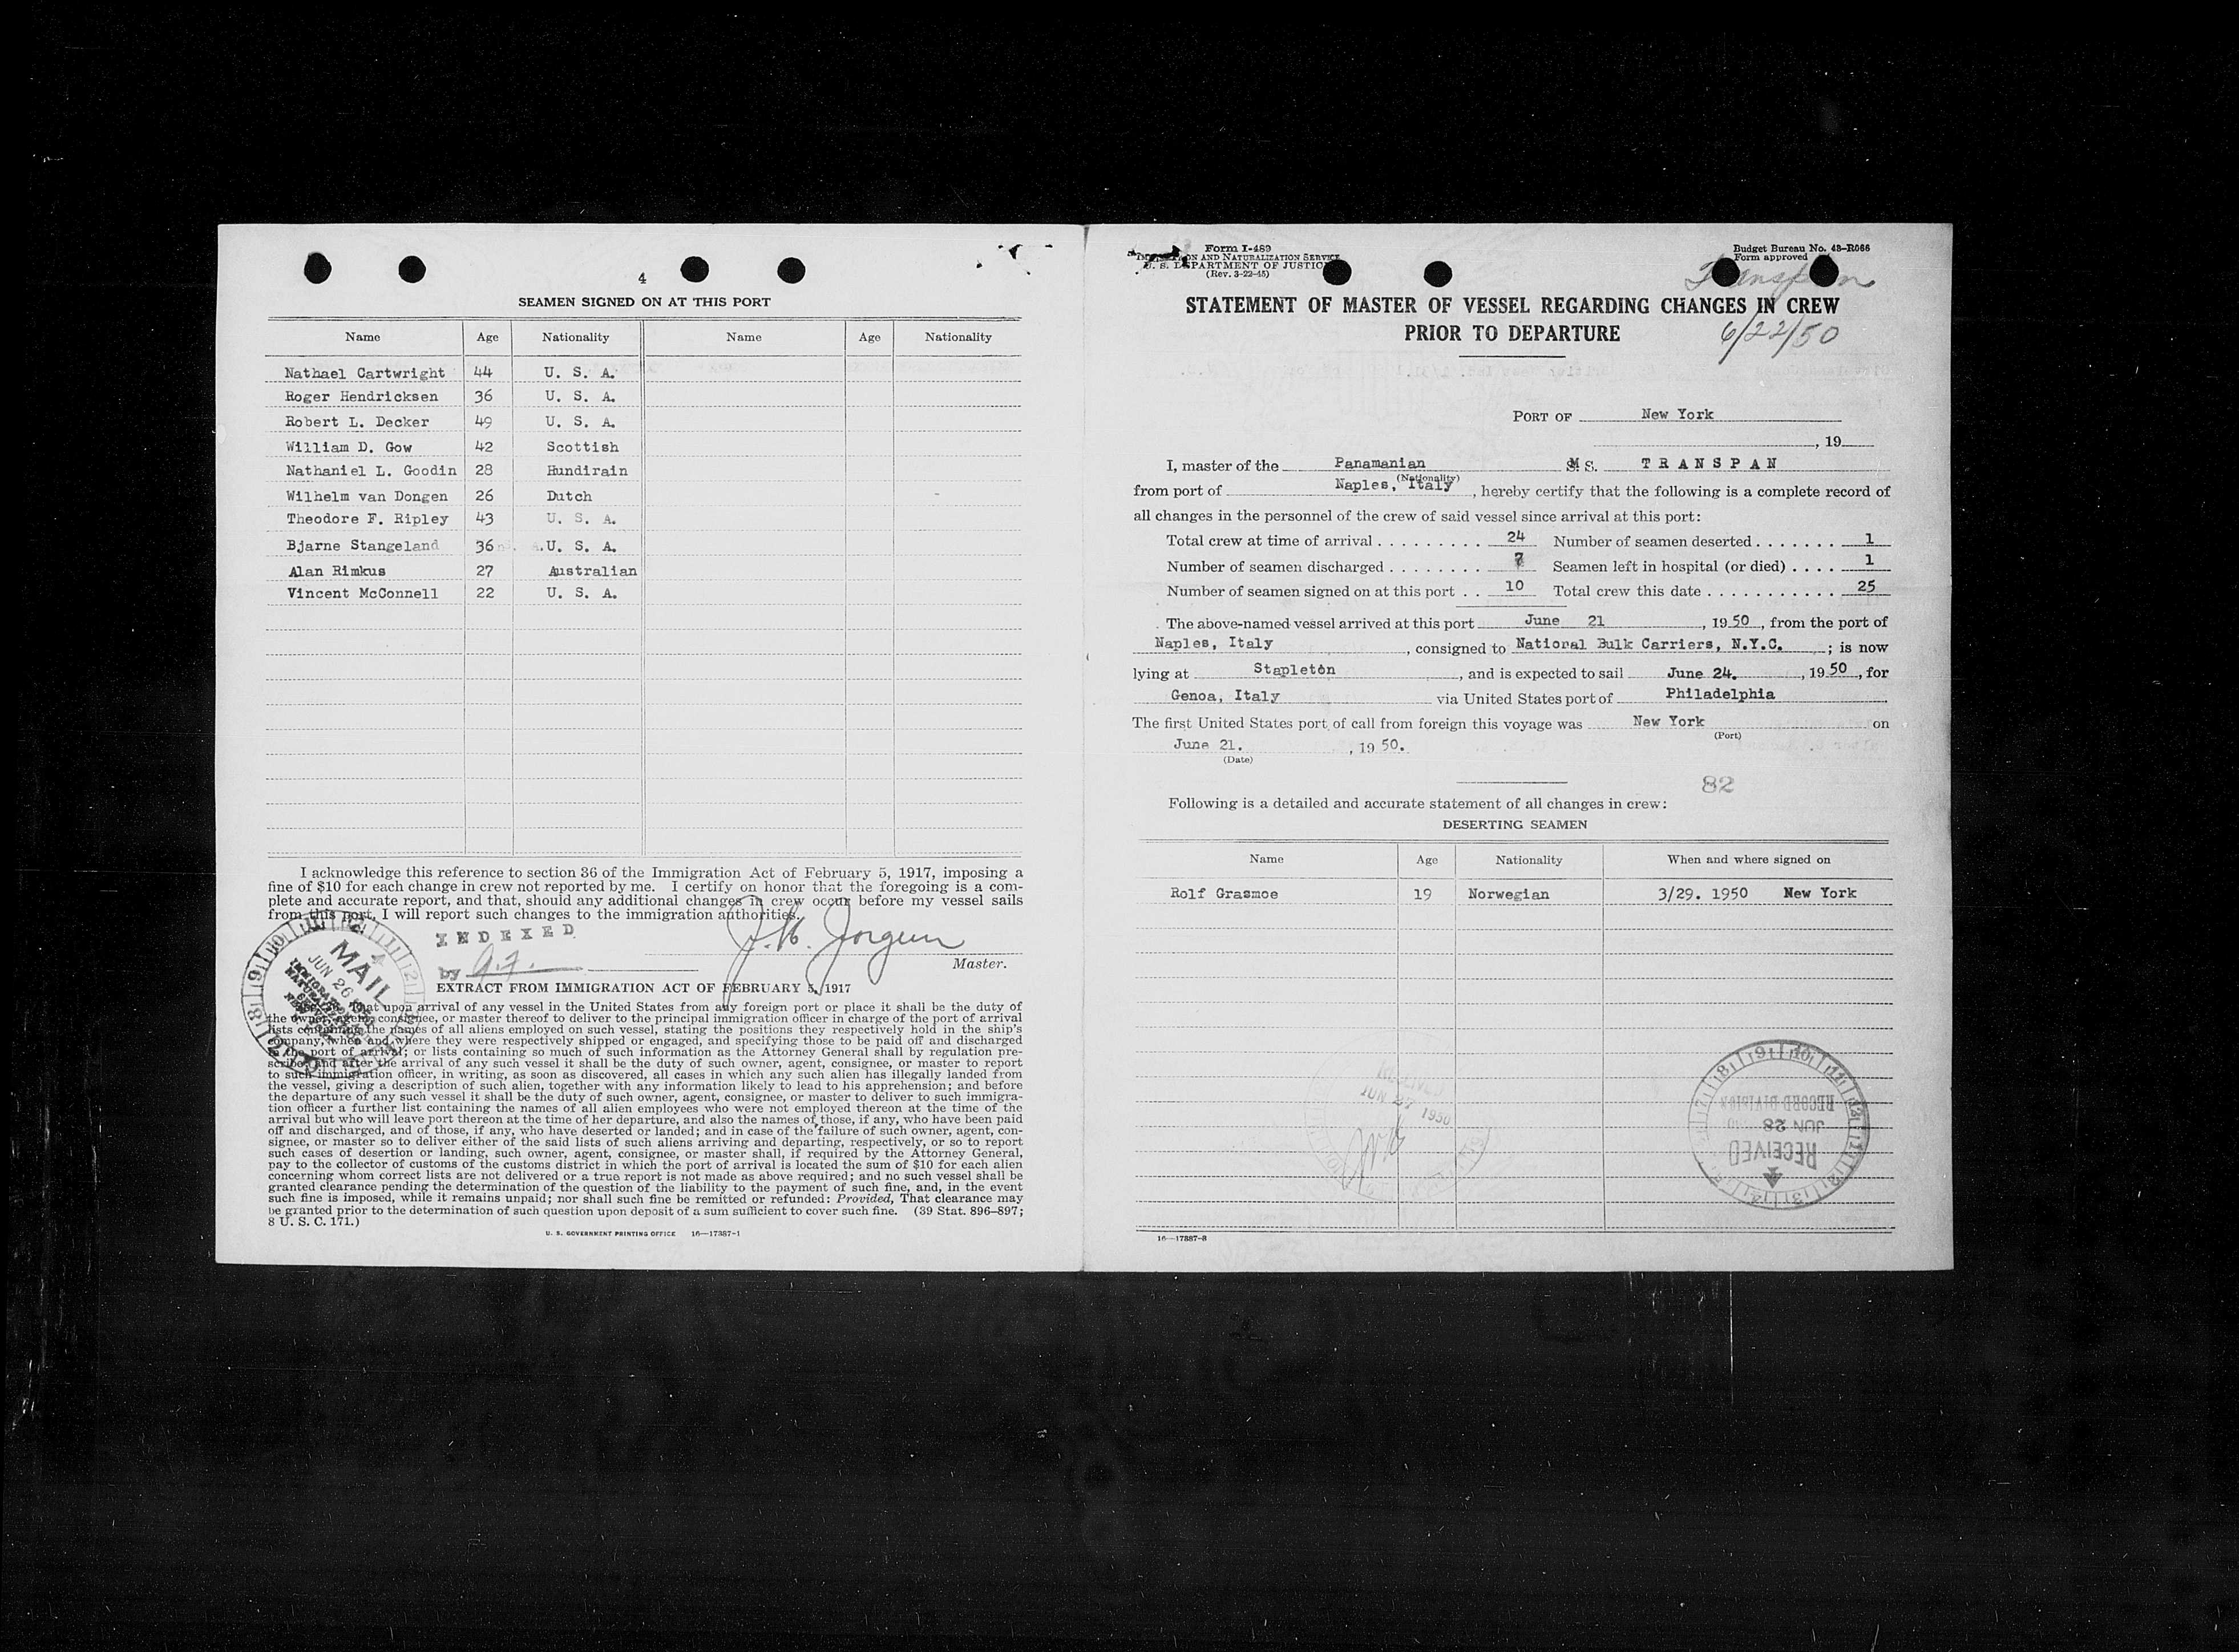 4
SEAMEN SIGNED ON AT THIS PORT
Name Age Nationality Name Age Nationality
Nathael Cartwright 44 U. S. A.
Roger Hendricksen 36 U. S. A.
Robert L. Decker 49 U. S. A.
William D. Gow 42 Scottish
Nathaniel L. Goodin 28 Hundirain
Wilhelm van Dongen 26 Dutch
Theodore F. Ripley 43 U. S. A.
Bjarne Stangeland 36 U. S. A.
Alan Rimkus 27 Australian
Vincent McConnell 22 U. S. A.
I acknowledge this reference to section 36 of the Immigration Act of February 5, 1917, imposing a
fine of $10 for each change in crew not reported by me. I certify on honor that the foregoing is a com-
plete and accurate report, and that, should any additional changes in crew occur before my vessel sails
from this port, I will report such changes to the immigration authorities.
INDEXED
by
Master.
MAIL
JUN 26
EXTRACT FROM IMMIGRATION ACT OF FEBRUARY 5, 1917
That upon arrival of any vessel in the United States from any foreign port or place it shall be the duty of
the owner, agent, consignee, or master thereof to deliver to the principal immigration officer in charge of the port of arrival
lists containing the names of all aliens employed on such vessel, stating the positions they respectively hold in the ship's
company, when and where they were respectively shipped or engaged, and specifying those to be paid off and discharged
in the port of arrival; or lists containing so much of such information as the Attorney General shall by regulation pre-
scribe; and after the arrival of any such vessel it shall be the duty of such owner, agent, consignee, or master to report
to such immigration officer, in writing, as soon as discovered, all cases in which any such alien has illegally landed from
the vessel, giving a description of such alien, together with any information likely to lead to his apprehension; and before
the departure of any such vessel it shall be the duty of such owner, agent, consignee, or master to deliver to such immigra-
tion officer a further list containing the names of all alien employees who were not employed thereon at the time of the
arrival but who will leave port thereon at the time of her departure, and also the names of those, if any, who have been paid
off and discharged, and of those, if any, who have deserted or landed; and in case of the failure of such owner, agent, con-
signee, or master so to deliver either of the said lists of such aliens arriving and departing, respectively, or so to report
such cases of desertion or landing, such owner, agent, consignee, or master shall, if required by the Attorney General,
pay to the collector of customs of the customs district in which the port of arrival is located the sum of $10 for each alien
concerning whom correct lists are not delivered or a true report is not made as above required; and no such vessel shall be
granted clearance pending the determination of the question of the liability to the payment of such fine, and, in the event
such fine is imposed, while it remains unpaid; nor shall such fine be remitted or refunded: Provided, That clearance may
be granted prior to the determination of such question upon deposit of a sum sufficient to cover such fine. (39 Stat. 896–897;
8 U. S. C. 171.)
U. S. GOVERNMENT PRINTING OFFICE 16—17387-1
Form I-489
IMMIGRATION AND NATURALIZATION SERVICE
U. S. DEPARTMENT OF JUSTICE
(Rev. 3-22-45)
Budget Bureau No. 43–R066
Form approved
Transpan
STATEMENT OF MASTER OF VESSEL REGARDING CHANGES IN CREW
PRIOR TO DEPARTURE
6/22/50
PORT OF New York
, 19
I, master of the Panamanian M S. TRANSPAN
(Nationality)
from port of Naples, Italy , hereby certify that the following is a complete record of
all changes in the personnel of the crew of said vessel since arrival at this port:
Total crew at time of arrival 24 Number of seamen deserted 1
Number of seamen discharged 7 Seamen left in hospital (or died) 1
Number of seamen signed on at this port 10 Total crew this date 25
The above-named vessel arrived at this port June 21 , 1950, from the port of
Naples, Italy , consigned to National Bulk Carriers, N.Y.C. ; is now
lying at Stapleton , and is expected to sail June 24. , 1950, for
Genoa, Italy via United States port of Philadelphia
The first United States port of call from foreign this voyage was New York on
(Port)
June 21. , 1950.
(Date)
82
Following is a detailed and accurate statement of all changes in crew:
DESERTING SEAMEN
Name Age Nationality When and where signed on
Rolf Grasmoe 19 Norwegian 3/29. 1950 New York
RECEIVED
JUN 27 1950
RECORD DIVISION
JUN 28
RECEIVED
16—17887-8